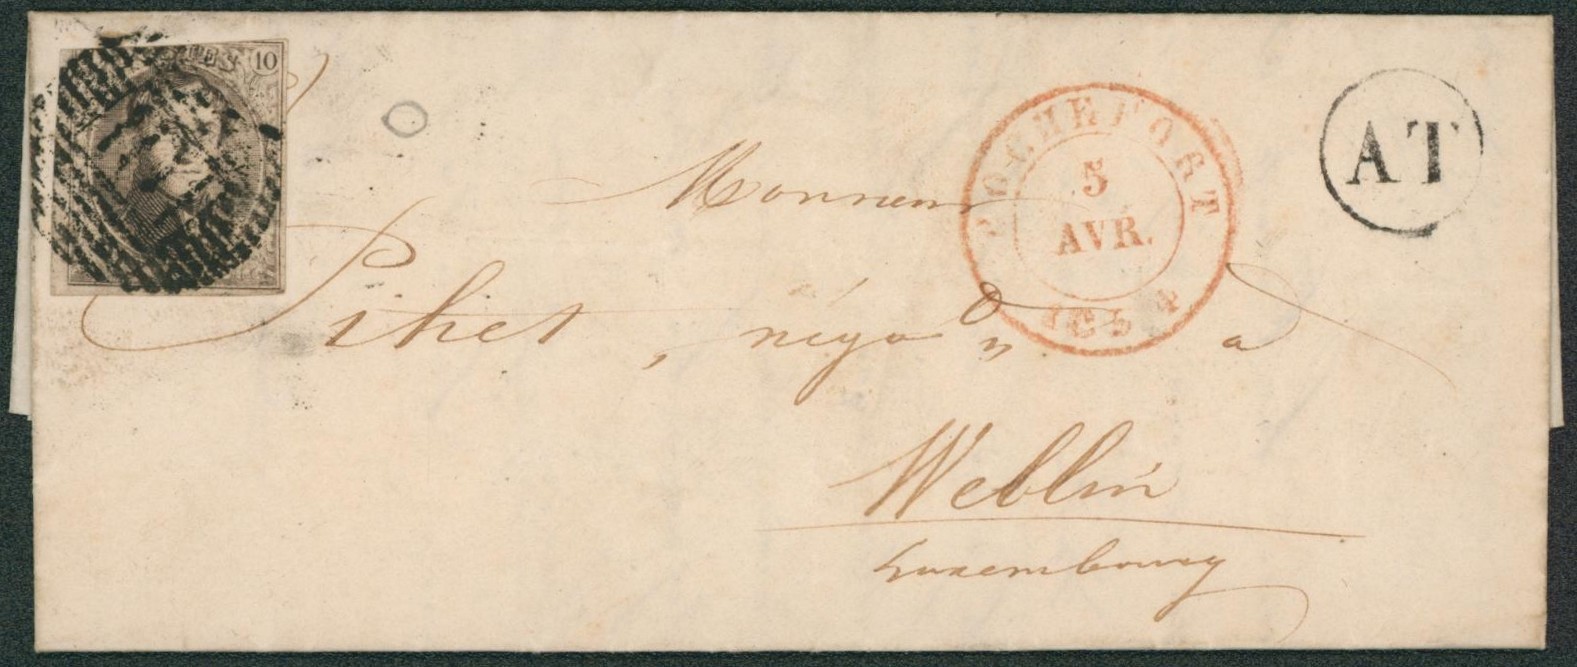 POSTES 10
ROCHEFORT
5
AVR.
1854
AT
Monsieur
Pihet, négo^t, a
Wellin
Luxembourg